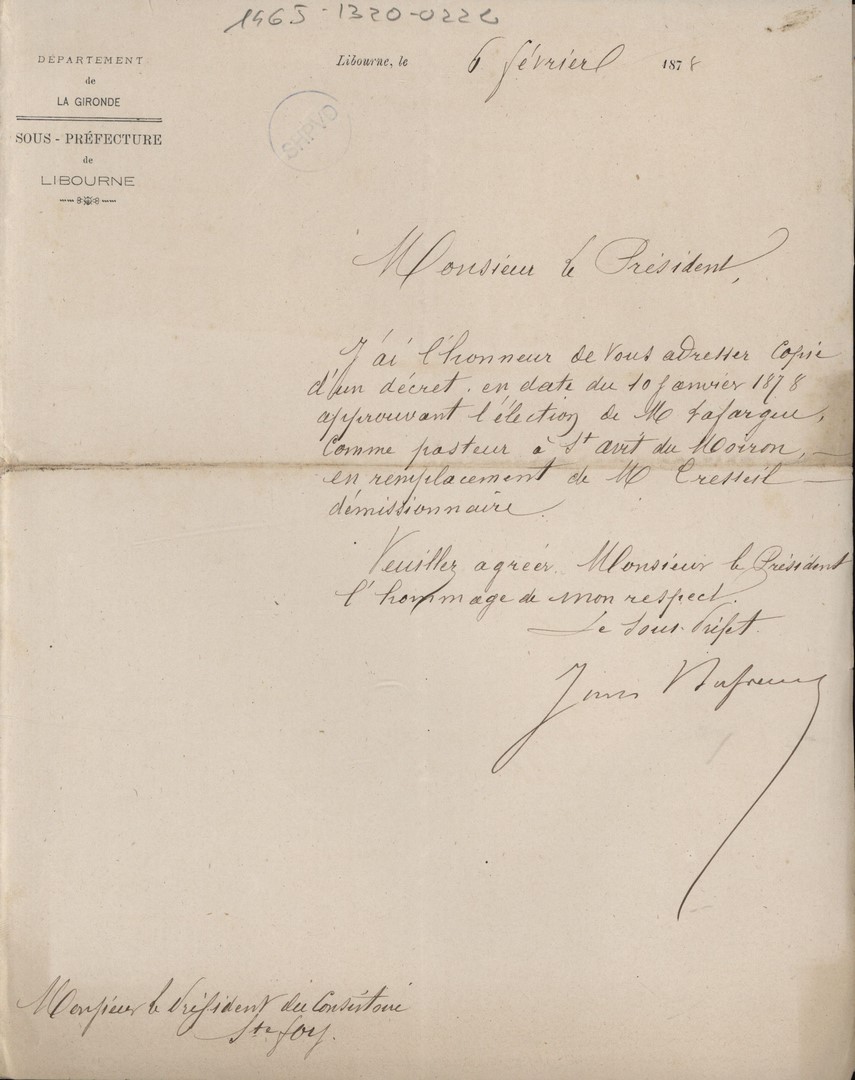 1965-1320-0222
DÉPARTEMENT
de
LA GIRONDE
SOUS-PRÉFECTURE
de
LIBOURNE
Libourne, le 6 février 1878
SHPVD
Monsieur le Président,
J'ai l'honneur de vous adresser Copie
d'un décret. en date du 10 Janvier 1878
approuvant l'élection de M Lafargue,
Comme pasteur à St avit du Moiron,
en remplacement de M Cresseil
démissionnaire.
Veuillez agréer. Monsieur le Président
l'hommage de mon respect.
Le Sous-Préfet.
Monsieur le Président du Consistoire
Ste foy.